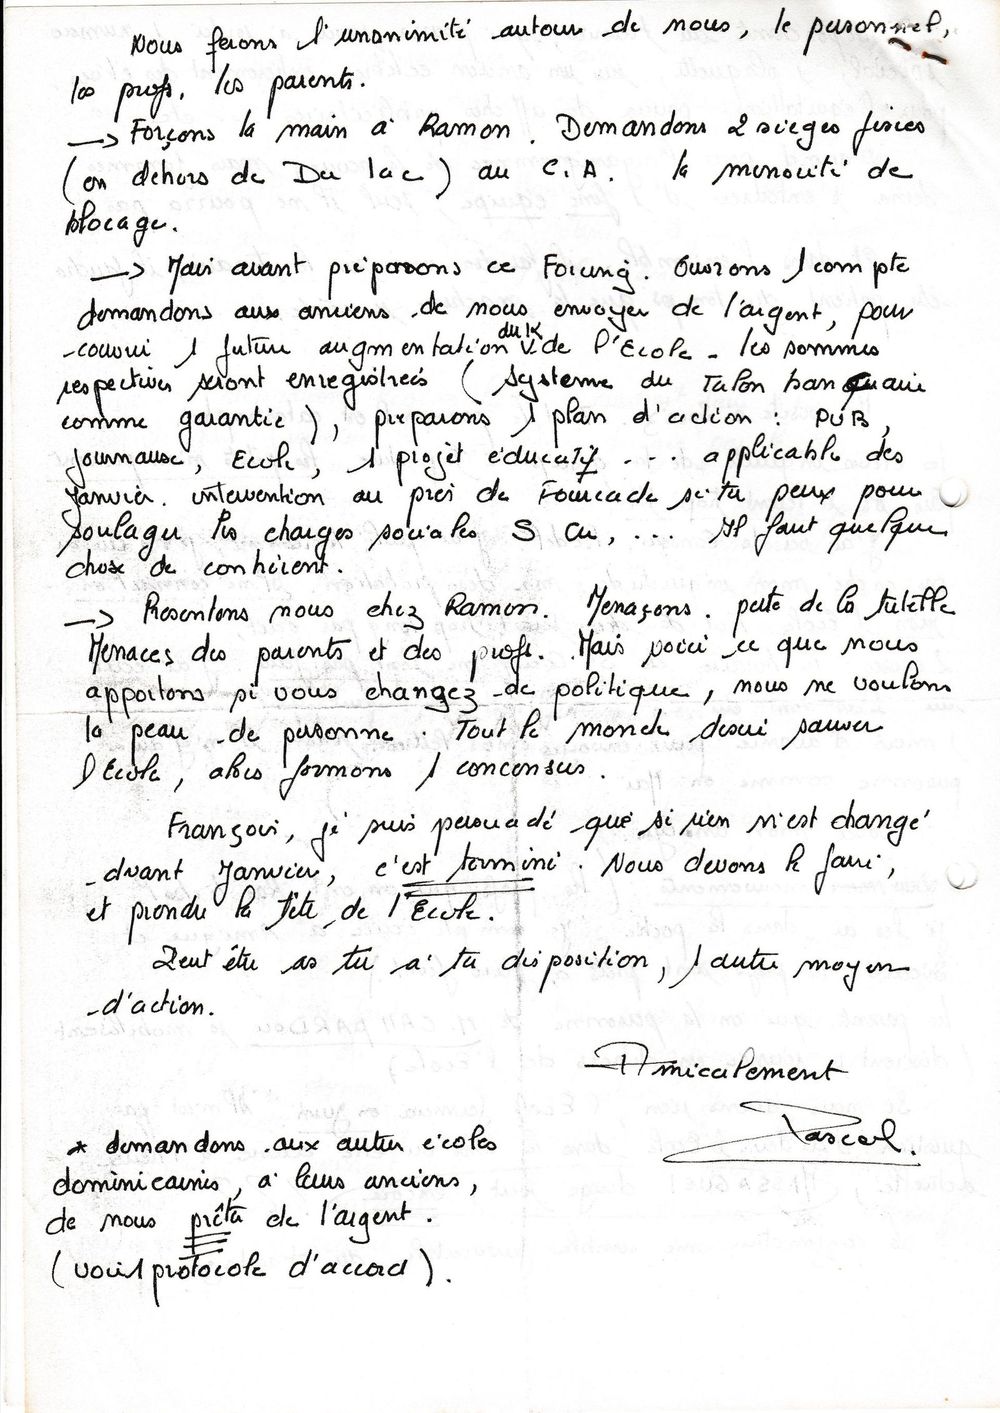 Nous ferons l'unanimité autour de nous, le personnel,
les profs, les parents.
→ Forçons la main à Ramon. Demandons 2 sièges fixes
(en dehors de Du lac) au C.A. la minorité de
blocage.
→ Mais avant préparons ce Forcing. Ouvrons 1 compte
demandons aux anciens de nous envoyer de l'argent, pour
couvrir 1 future augmentation du K de l'Ecole - les sommes
respectives seront enregistrées (système du Talon bancaire
comme garantie), préparons 1 plan d'action : PUB,
Journaux, Ecole, 1 projet éducatif ... applicable dès
Janvier. intervention au près de Fourcade si tu peux pour
soulager les charges sociales S Cu, ... Il faut quelque
chose de cohérent.
→ Présentons nous chez Ramon. Menaçons. perte de la tutelle
Menaces des parents et des profs. Mais voici ce que nous
apportons si vous changez de politique, nous ne voulons
la peau de personne. Tout le monde desire sauver
l'Ecole, alors formons 1 concensus.
François, je suis persuadé que si rien n'est changé
avant Janvier, c'est terminé. Nous devons le faire,
et prendre la tête de l'Ecole.
Peut être as tu à ta disposition, 1 autre moyen
d'action.
Amicalement
Pascal.
* demandons aux autres écoles
dominicaines, à leurs anciens,
de nous prêter de l'argent.
(voir 1 protocole d'accord).